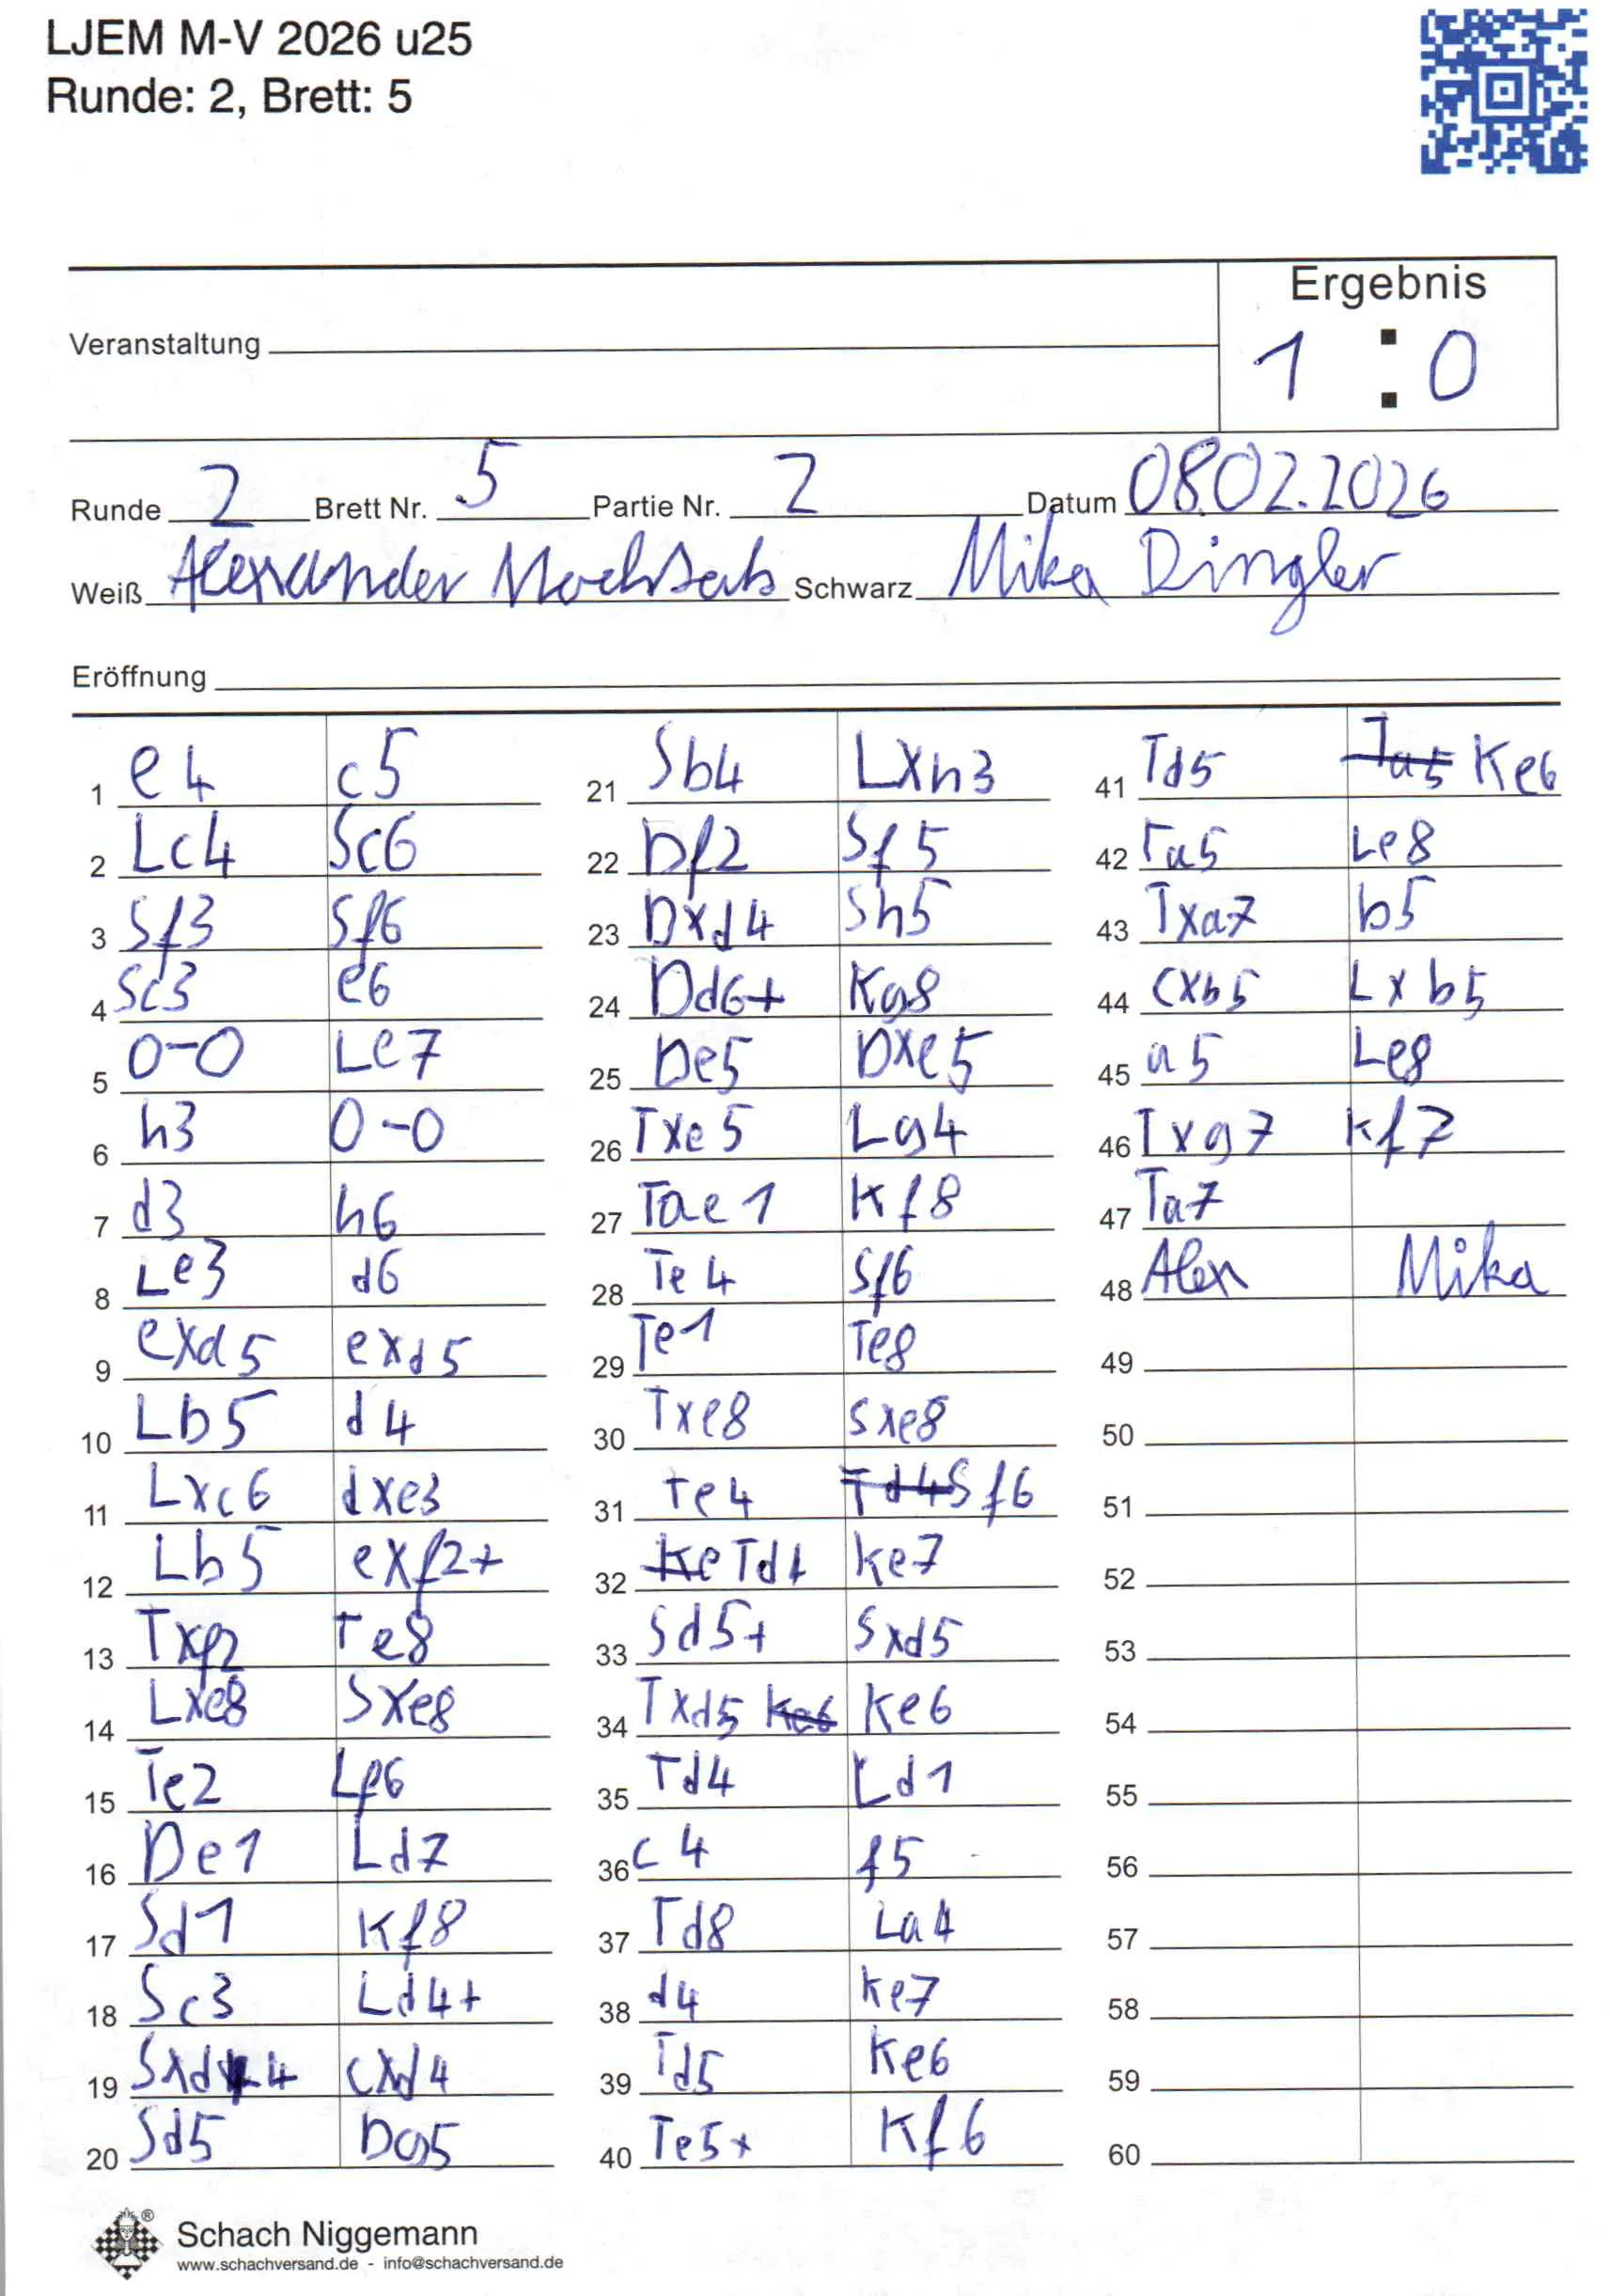 LJEM M-V 2026 u25
Runde: 2, Brett: 5
Ergebnis
Veranstaltung
1 : 0
Runde 2 Brett Nr. 5 Partie Nr. 2 Datum 08.02.2026
Weiß Alexander Schwarz Mika Dingler
Eröffnung
1 e4 c5
2 Lc4 Sc6
3 Sf3 Sf6
4 Sc3 e6
5 0-0 Le7
6 h3 0-0
7 d3 h6
8 Le3 d6
9 exd5 exd5
10 Lb5 d4
11 Lxc6 dxe3
12 Lb5 exf2+
13 Txf2 Te8
14 Lxe8 Sxe8
15 Te2 Lf6
16 De1 Ld7
17 Sd1 Kf8
18 Sc3 Ld4+
19 Sxd4 cxd4
20 Sd5 Dg5
21 Sb4 Lxh3
22 Df2 Sf5
23 Dxd4 Sh5
24 Dd6+ Kg8
25 De5 Dxe5
26 Txe5 Lg4
27 Tae1 Kf8
28 Te4 Sf6
29 Te1 Te8
30 Txe8 Sxe8
31 Te4 Td4 Sf6
32 Ke Td4 Ke7
33 Sd5+ Sxd5
34 Txd5 Ke6 Ke6
35 Td4 Ld1
36 c4 f5
37 Td8 La4
38 d4 Ke7
39 Td5 Ke6
40 Te5+ Kf6
41 Td5 Ta5 Ke6
42 Ta5 Le8
43 Txa7 b5
44 cxb5 Lxb5
45 a5 Le8
46 Txg7 Kf7
47 Ta7
48 Alex Mika
49
50
51
52
53
54
55
56
57
58
59
60
® Schach Niggemann
www.schachversand.de - info@schachversand.de